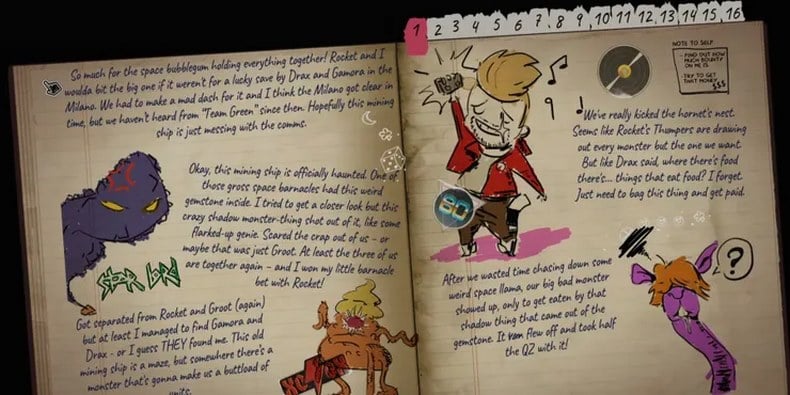 So much for the space bubblegum holding everything together! Rocket and I
woulda bit the big one if it weren't for a lucky save by Drax and Gamora in the
Milano. We had to make a mad dash for it and I think the Milano got clear in
time, but we haven't heard from "Team Green" since then. Hopefully this mining
ship is just messing with the comms.
Okay, this mining ship is officially haunted. One of
those gross space barnacles had this weird
gemstone inside. I tried to get a closer look but this
crazy shadow monster-thing shot out of it, like some
flarked-up genie. Scared the crap out of us - or
maybe that was just Groot. At least the three of us
are together again - and I won my little barnacle
bet with Rocket!
STAR LORD
Got separated from Rocket and Groot (again)
but at least I managed to find Gamora and
Drax - or I guess THEY found me. This old
mining ship is a maze, but somewhere there's a
monster that's gonna make us a buttload of
units.
1 2 3 4 5 6 7 8 9 10 11 12 13 14 15 16
NOTE TO SELF
- FIND OUT HOW
MUCH BOUNTY
ON ME IS
- TRY TO GET
THAT MONEY
$$$
We've really kicked the hornet's nest.
Seems like Rocket's Thumpers are drawing
out every monster but the one we want.
But like Drax said, where there's food
there's... things that eat food? I forget.
Just need to bag this thing and get paid.
After we wasted time chasing down some
weird space llama, our big bad monster
showed up, only to get eaten by that
shadow thing that came out of the
gemstone. It flew off and took half
the QZ with it!
?